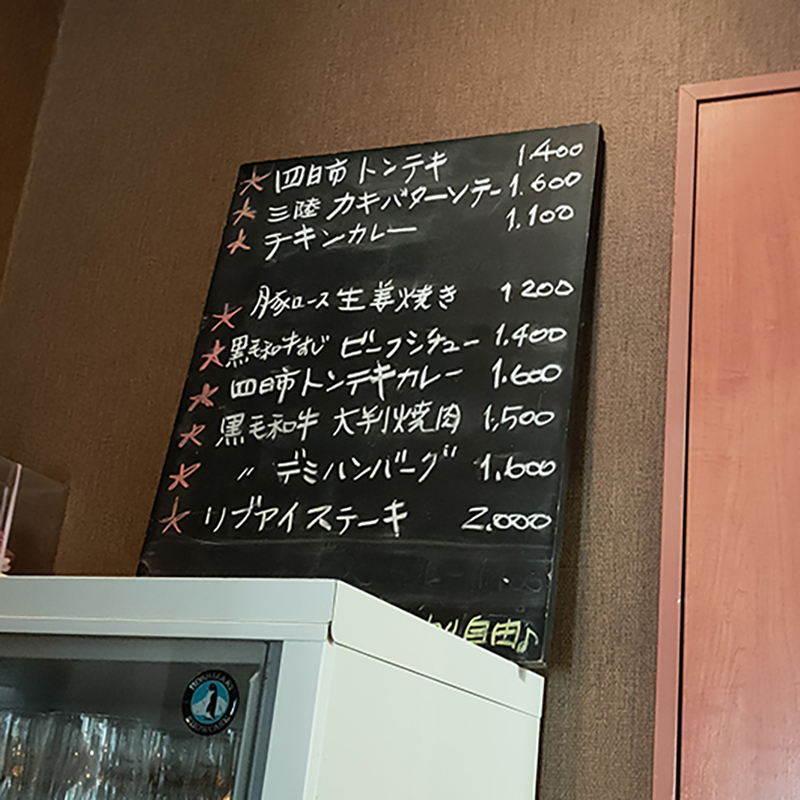 ★ 四日市トンテキ 1.400
★ 三陸 カキバターソテー 1.600
★ チキンカレー 1,100
★ 豚ロース生姜焼き 1.200
★ 黒毛和牛すじ ビーフシチュー 1.400
★ 四日市トンテキカレー 1.600
★ 黒毛和牛 大判焼肉 1,500
★ 〃 デミハンバーグ 1,600
★ リブアイステーキ 2.000
自由♪
HOSHIZAKI